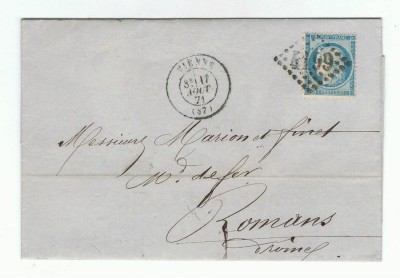 VIENNE
AOUT
71
(37)
Messieurs Marion et finet
Md. de fer
Romans
Drome